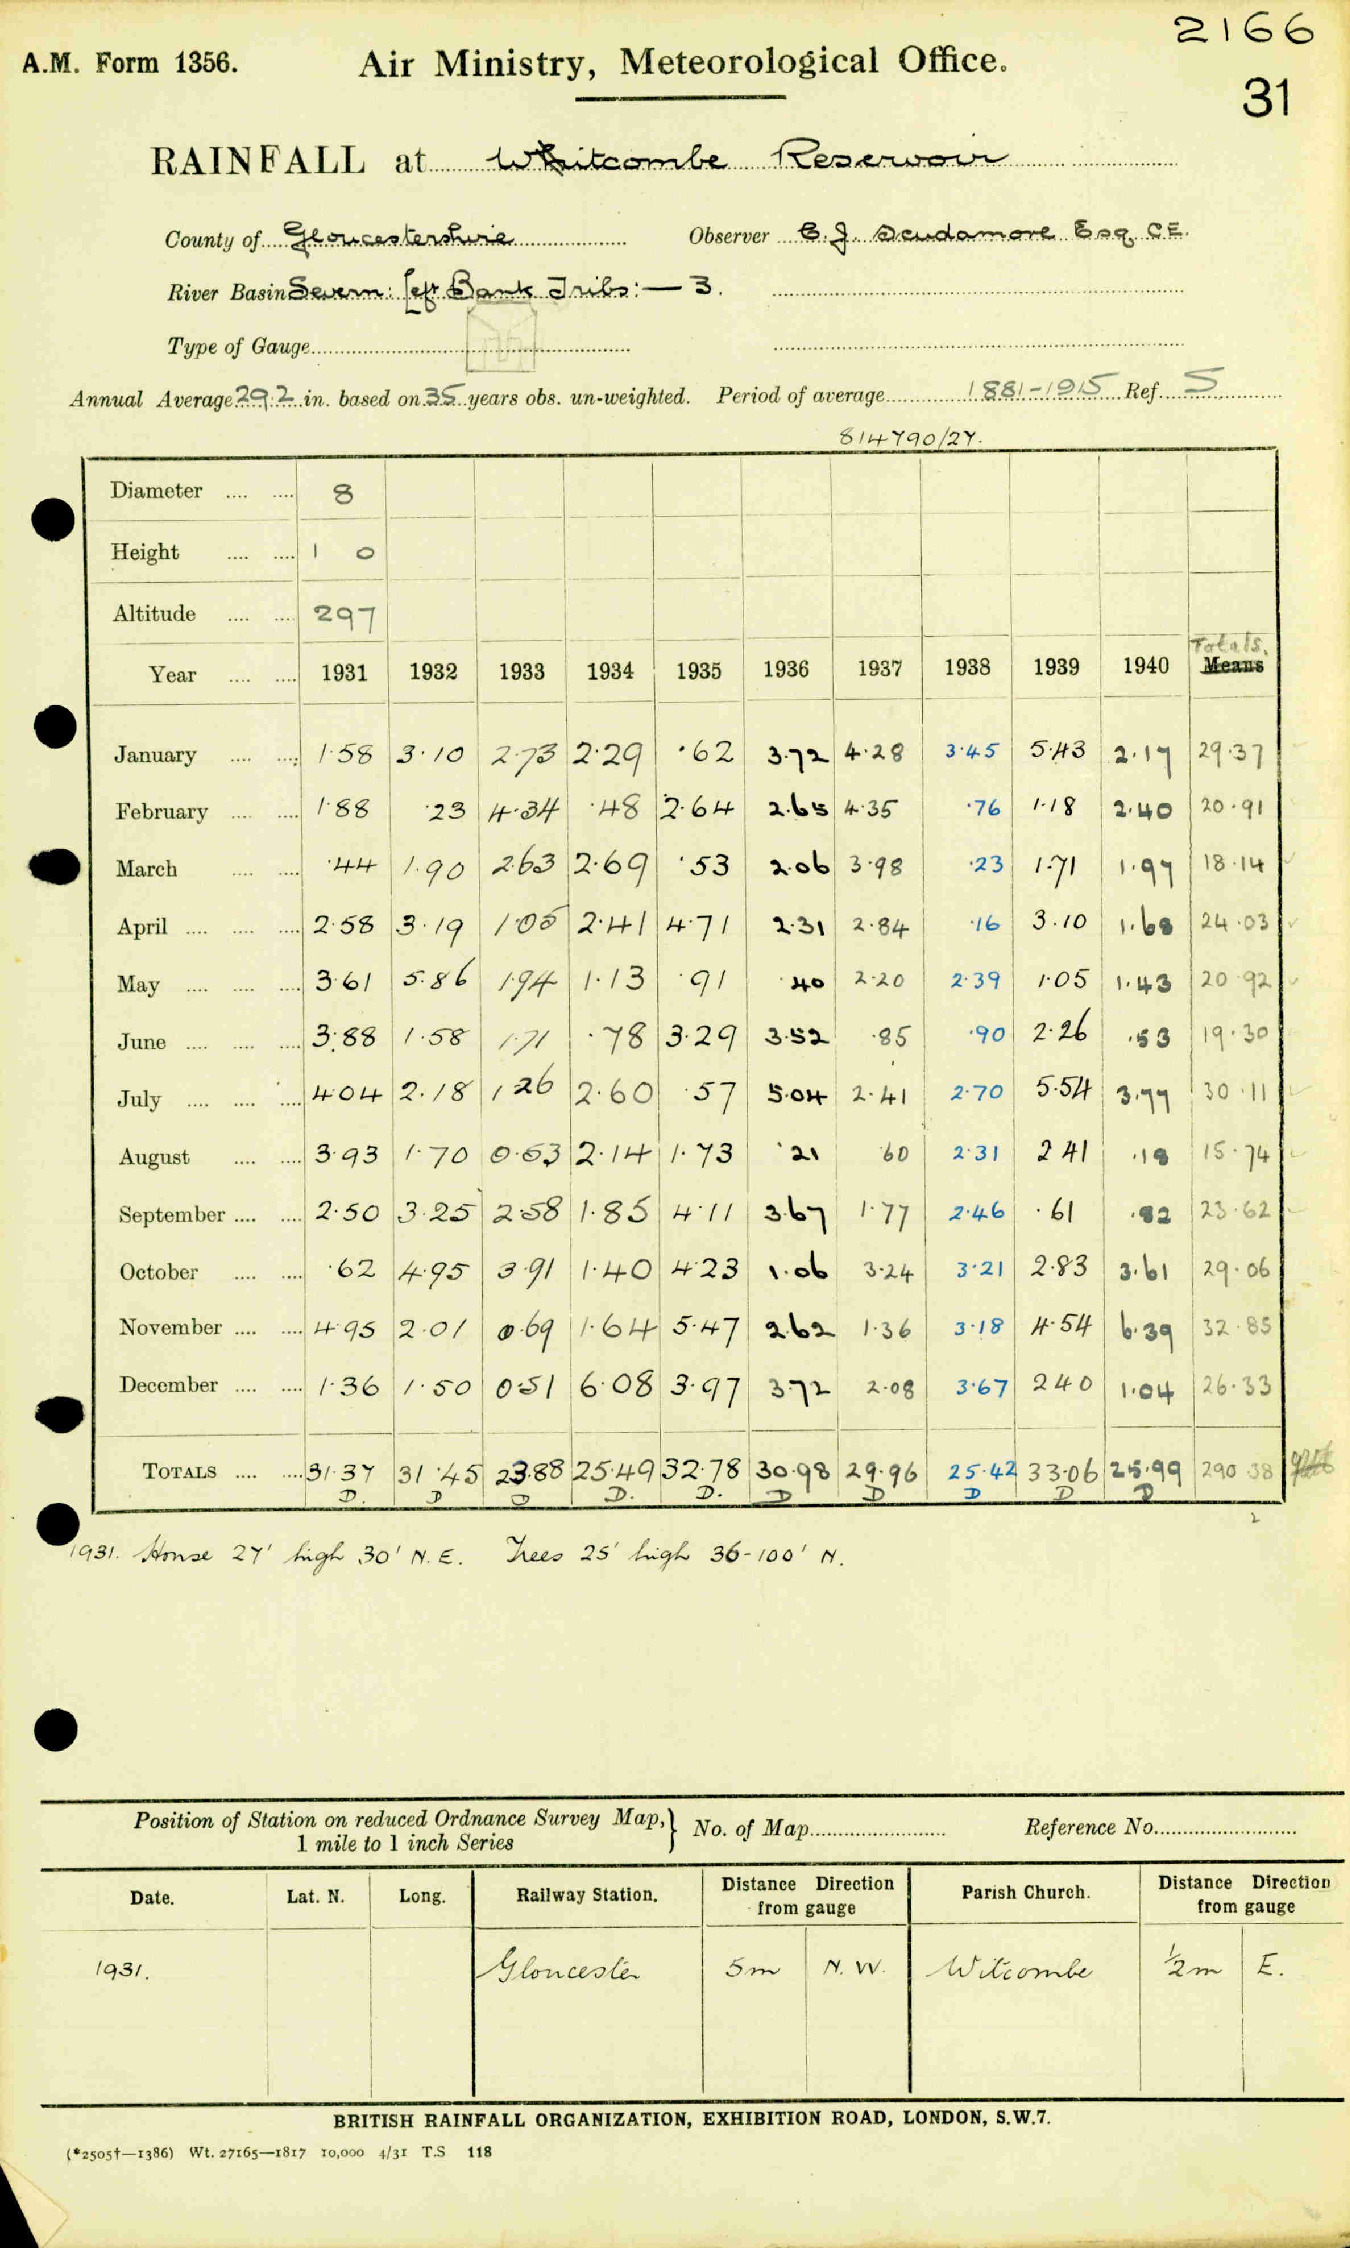 2166
A.M. Form 1356. Air Ministry, Meteorological Office.
31
RAINFALL at Whitcombe Reservoir
County of Gloucestershire Observer E.J. Scudamore Esq. CE.
River Basin Severn: Left Bank Tribs:— 3.
Type of Gauge
Annual Average 29.2 in. based on 35 years obs. un-weighted. Period of average 1881-1915 Ref. S
814790/27.
Diameter 8
Height 1 0
Altitude 297
Totals.
Year 1931 1932 1933 1934 1935 1936 1937 1938 1939 1940 Means
January 1.58 3.10 2.73 2.29 .62 3.72 4.28 3.45 5.43 2.17 29.37
February 1.88 .23 4.34 .48 2.64 2.65 4.35 .76 1.18 2.40 20.91
March .44 1.90 2.63 2.69 .53 2.06 3.98 .23 1.71 1.97 18.14
April 2.58 3.19 1.05 2.41 4.71 2.31 2.84 .16 3.10 1.68 24.03
May 3.61 5.86 1.94 1.13 .91 .40 2.20 2.39 1.05 1.43 20.92
June 3.88 1.58 1.71 .78 3.29 3.52 .85 .90 2.26 .53 19.30
July 4.04 2.18 1.26 2.60 .57 5.04 2.41 2.70 5.54 3.77 30.11
August 3.93 1.70 0.53 2.14 1.73 .21 .60 2.31 2.41 .18 15.74
September 2.50 3.25 2.58 1.85 4.11 3.67 1.77 2.46 .61 .82 23.62
October .62 4.95 3.91 1.40 4.23 1.06 3.24 3.21 2.83 3.61 29.06
November 4.95 2.01 0.69 1.64 5.47 2.62 1.36 3.18 4.54 6.39 32.85
December 1.36 1.50 0.51 6.08 3.97 3.72 2.08 3.67 2.40 1.04 26.33
TOTALS 31.37 31.45 23.88 25.49 32.78 30.98 29.96 25.42 33.06 25.99 290.38
D. D D D. D. D D D D D
2
1931. House 27' high 30' N.E. Trees 25' high 36-100' N.
Position of Station on reduced Ordnance Survey Map,} No. of Map Reference No.
1 mile to 1 inch Series
Date. Lat. N. Long. Railway Station. Distance Direction from gauge Parish Church. Distance Direction from gauge
1931. Gloucester 5m N.W. Witcombe ½m E.
BRITISH RAINFALL ORGANIZATION, EXHIBITION ROAD, LONDON, S.W.7.
(*2505†—1386) Wt. 27165—1817 10,000 4/31 T.S 118